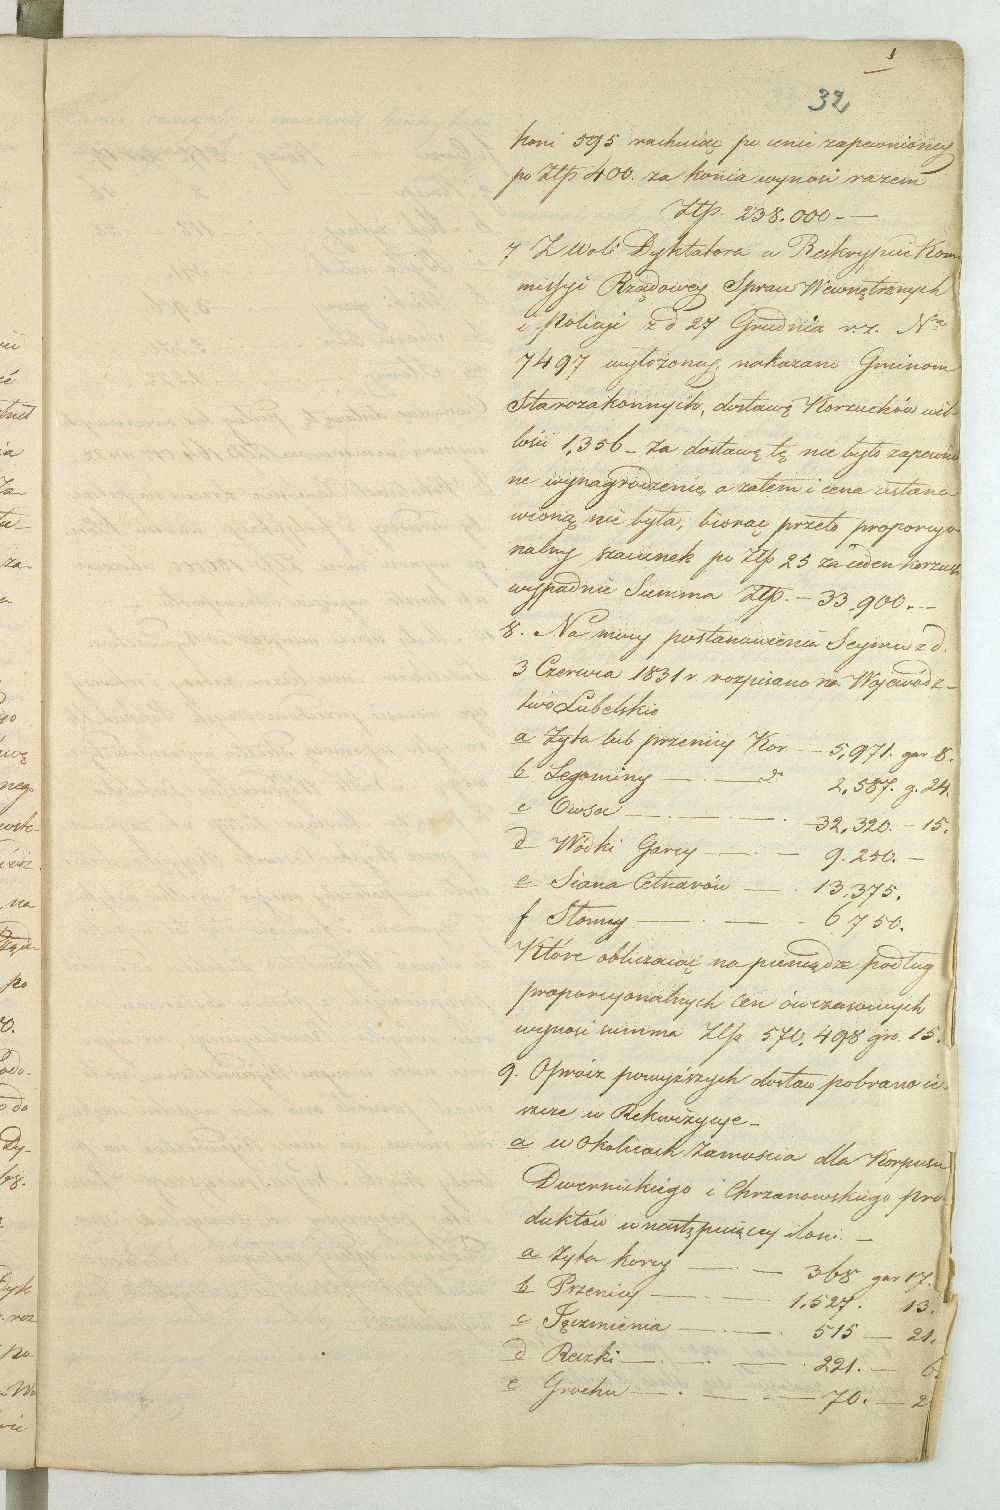 32
koni 595 rachuiąc po cenie zapewnioney
po Złp 400. za konia wynosi razem
Złp. 238.000 -
7 Z woli Dyktatora w Reskrypcie Kom-
missyi Rządowey Spraw Wewnętrznych
i Policyi z d 27 Grudnia r. z. Nro
7497 wyłożoney, nakazano Gminom
Starozakonnych, dostawę Korzuchów w il-
lości 1,356 - za dostawę tę nie było zapewnio
ne wynagrodzenie, a zatem i cena ustano-
wioną nie była, biorąc przeto proporcyo-
nalny szacunek po Złp 25 za ieden korzuch
wypadnie Summa Złp. - 33,900. -
8. Na mocy postanowienia Seymu z d.
3 Czerwca 1831 r rozpisano na Wojewódz-
two Lubelskie
a Żyta lub przenicy Kor. - 5,971. gar 8.
b Legominy - . - d° 2,587. g. 24.
c Owsa - . - . 32,320. - 15.
d Wódki Garcy - . - 9.250. -
e Siana Cetnarów - . 13,375.
f Słomy - . - . 6750.
Które obliczaiąc na pieniądze podług
proporcyonalnych cen ówczasowych
wynosi summa Złp 570.498 gro. 15.
9. Oprócz powyższych dostaw pobrano ie-
szcze w Rekwizycye -
a w okolicach Zamościa dla Korpusu
Dwernickiego i Chrzanowskiego pro-
duktów w następuiącey iłości. -
a Żyta korcy - . - 368 gar 17.
b Przenicy - . - 1,527. 13.
c Jęczmienia - . - . 515 - 21.
d Reczki - . - . 221. - 6.
e Grochu - . - . - 70. - 2